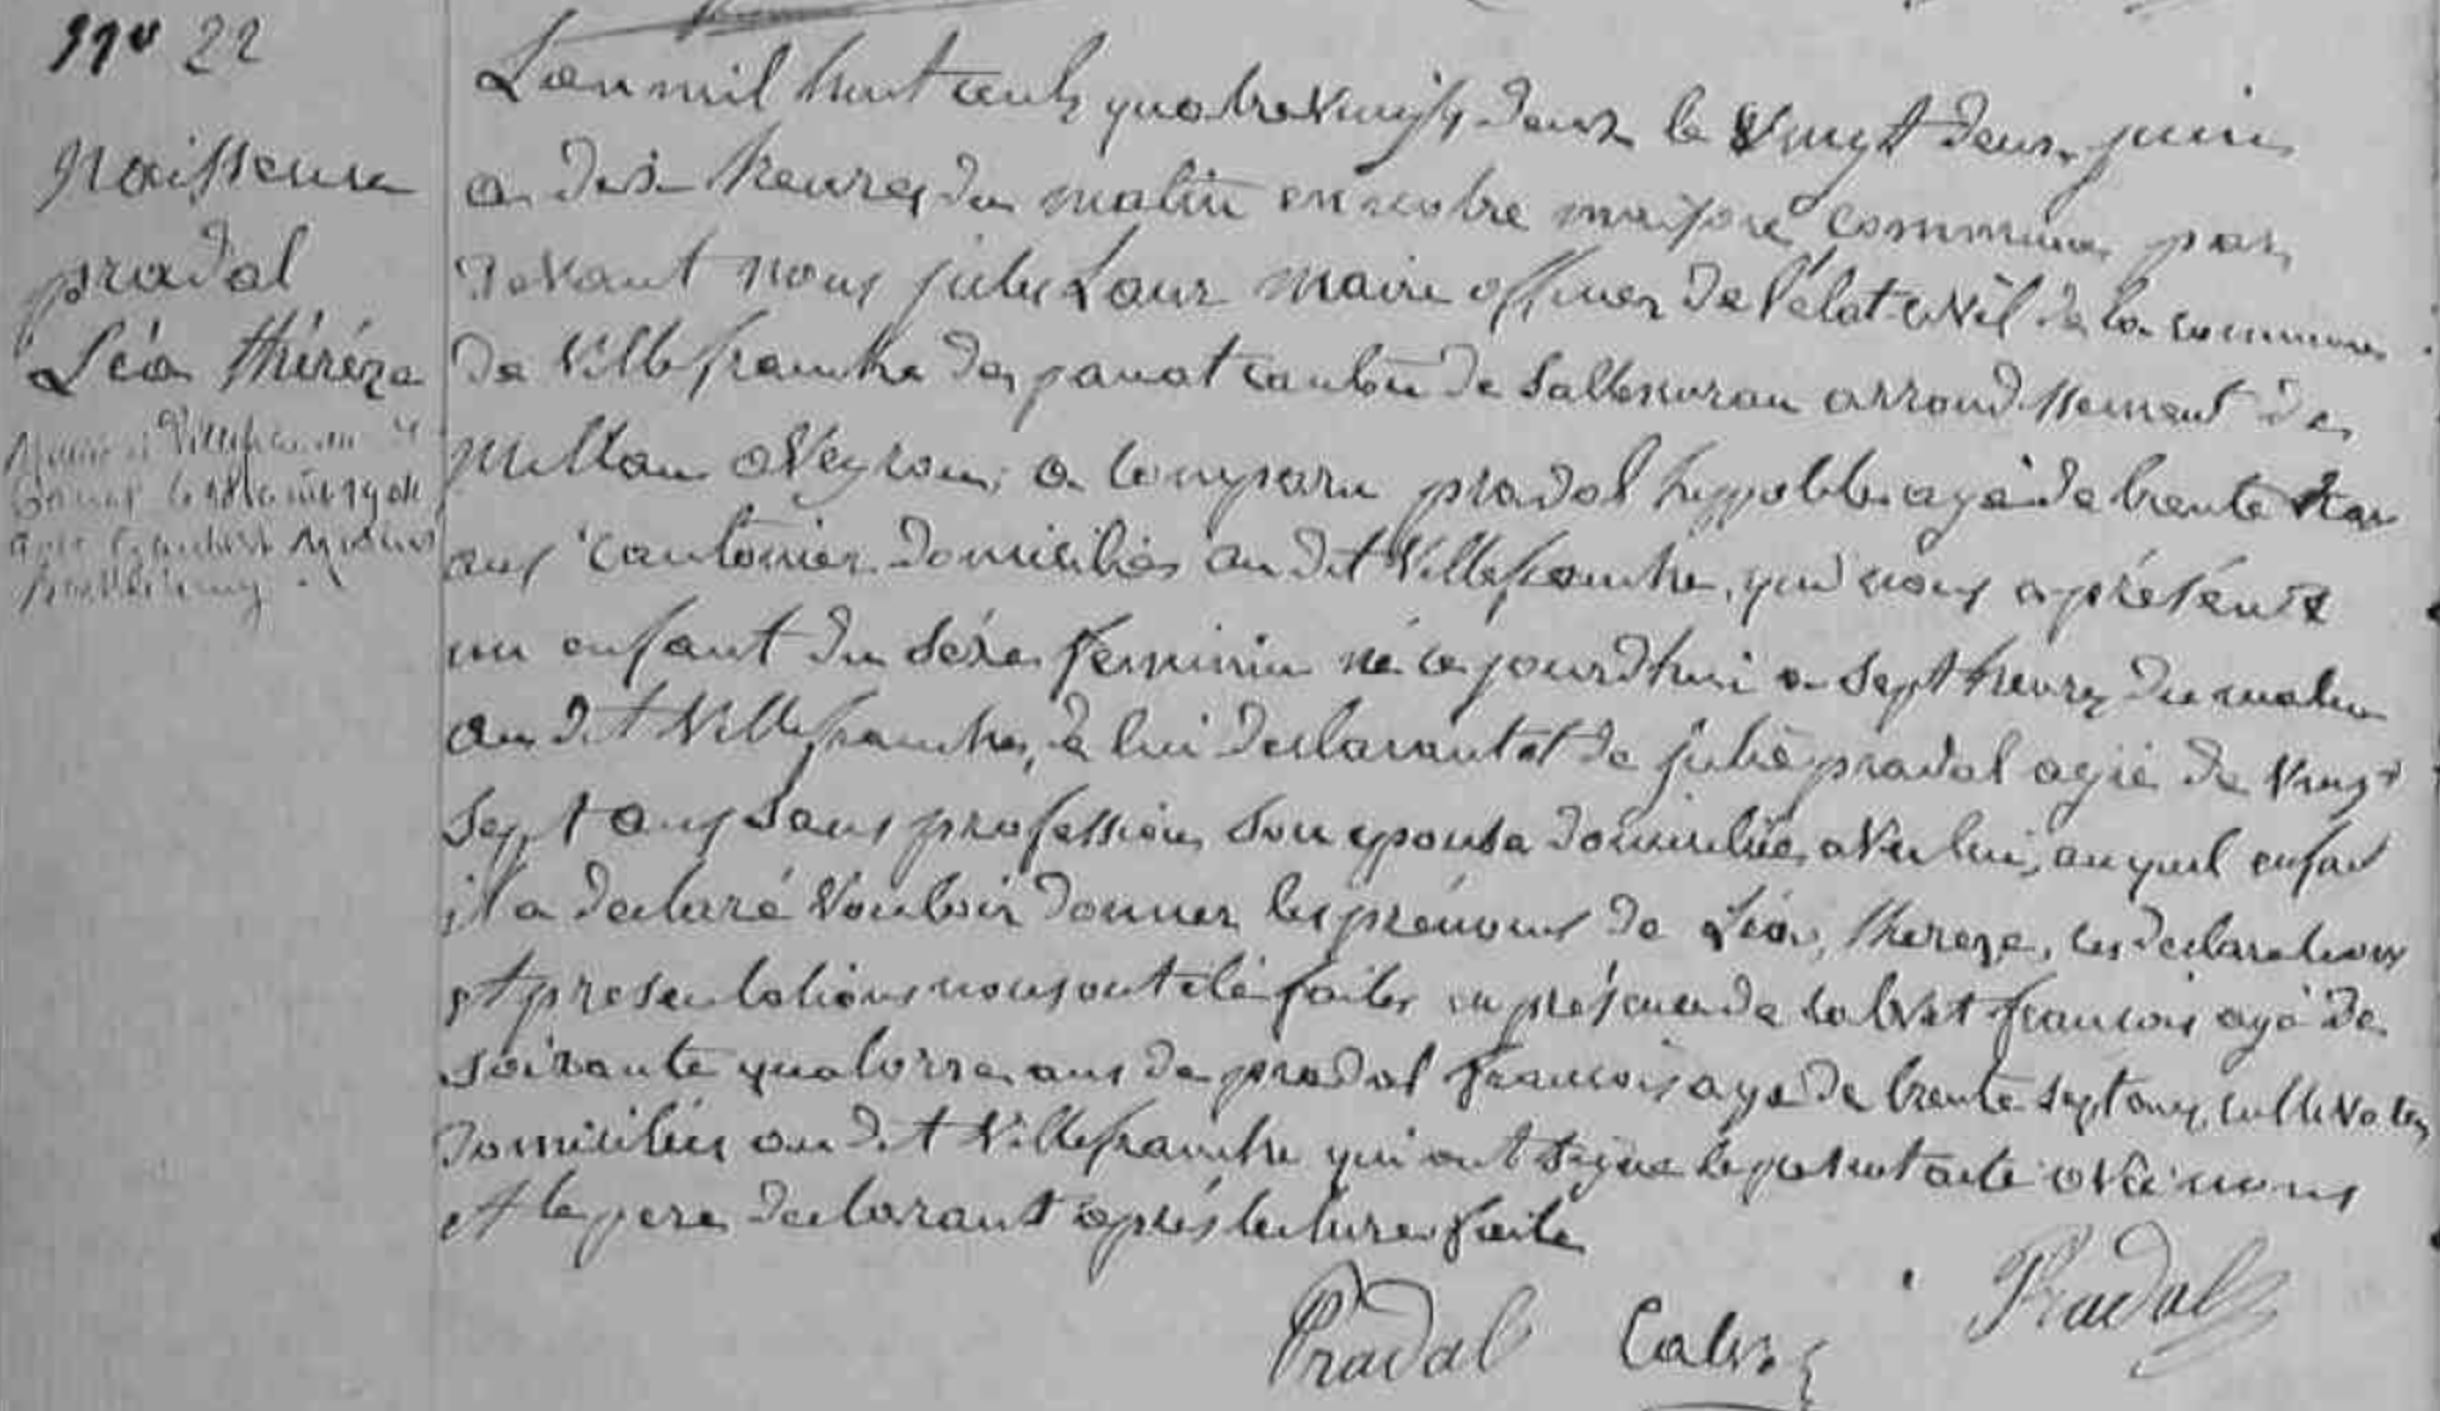 No 22
Naissence
pradal
Léa théréze
Marié à Villefranche de
avec
L'an mil huit cents quatre vingts deux le vingt deux juin
a dix heures du matin en notre maison commune par
devant nous jules Laur maire officier de l'état civil de la commune
de Villefranche de panat canton de Sallescuran arrondissement de
Millau aveyron, a comparu pradal hyppolite agé de trente
ans cantonier domicilié au dit Villefranche, qui nous a présenté
un enfant du séxe feminin né ce jourd'hui a sept heures du matin
au dit Villefranche, de lui declarant et de julie pradal agée de vingt
sept ans sans profession son epouse domiciliée avec lui, auquel enfant
il a declaré vouloir donner les prénoms de Léa, thereze, les declarations
et presentations nous ont eté faites en présence de calvet francois agé de
soixante quatorze ans de pradal francois agé de trente sept ans, cultivateurs
domiciliés au dit Villefranche qui ont signé le present acte avec nous
et le pere declarant aprés lecture faite
Pradal Calvet Pradal